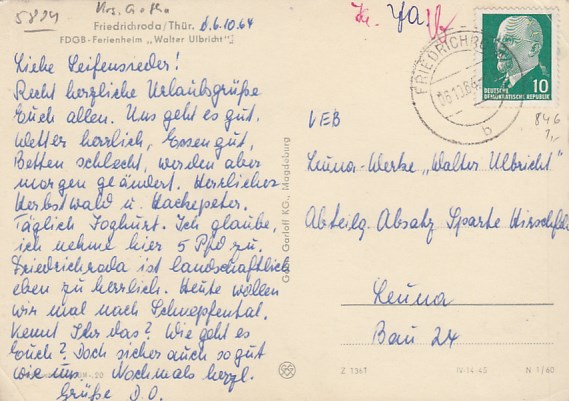 5804 Krs. Gotha
Friedrichroda/Thür. d. 6.10.64
FDGB-Ferienheim „Walter Ulbricht"
Liebe Seifensieder!
Recht herzliche Urlaubsgrüße
Euch allen. Uns geht es gut.
Wetter herrlich, Essen gut,
Betten schlecht, werden aber
morgen geändert. Herrlicher
Herbstwald u. Hackepeter.
Täglich Joghurt. Ich glaube,
ich nehme hier 5 Pfd zu.
Friedrichroda ist landschaftlich
eben zu herrlich. Heute wollen
wir mal nach Schnepfental.
Kennt Ihr das? Wie geht es
Euch? Doch sicher auch so gut
wie uns. Nochmals herzl.
Grüße D.O.
Garloff KG., Magdeburg
FRIEDRICHRO
b
10
DEUTSCHE
DEMOKRATISCHE REPUBLIK
846
VEB
Leuna-Werke „Walter Ulbricht"
Abteilg. Absatz Sparte Hirschfeld
Leuna
Bau 24
Z 1361 IV-14-45 N 1/60